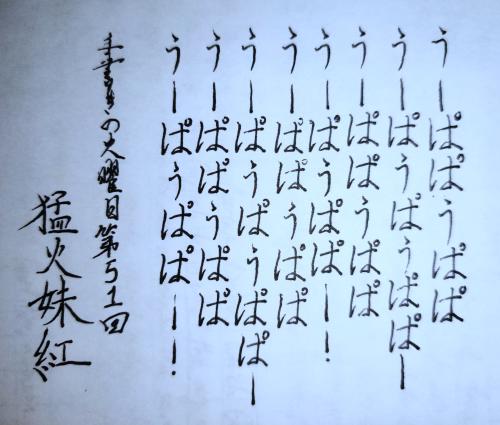 うーぱぱうぱぱ
うーぱうぱうぱぱー
うーぱぱうぱぱ
うーぱうぱぱー！
うーぱぱうぱぱ
うーぱうぱうぱぱー
うーぱぱうぱぱ
うーぱうぱぱー！
手書きの火曜日第51回
猛火妹紅